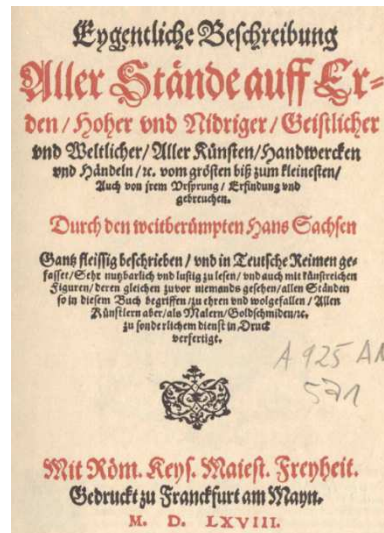 Eygentliche Beschreibung
Aller Stände auff Er-
den / Hoher vnd Nidriger / Geistlicher
vnd Weltlicher / Aller Künsten / Handwercken
vnd Händeln / ꝛc. vom grösten biß zum kleinesten /
Auch von jrem Vrsprung / Erfindung vnd
gebreuchen.
Durch den weitberümpten Hans Sachsen
Gantz fleissig beschrieben / vnd in Teutsche Reimen ge-
fasset / Sehr nutzbarlich vnd lustig zu lesen / vnd auch mit künstreichen
Figuren / deren gleichen zuvor niemands gesehen / allen Ständen
so in diesem Buch begriffen / zu ehren vnd wolgefallen / Allen
Künstlern aber / als Malern / Goldschmiden / ꝛc.
zu sonderlichem dienst in Druck
verfertigt.
A 925 AN
571
Mit Röm. Keys. Maiest. Freyheit.
Gedruckt zu Franckfurt am Mayn.
M. D. LXVIII.